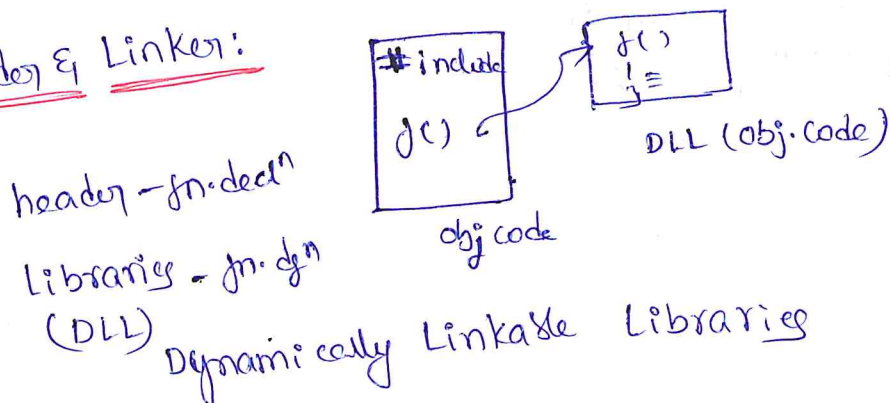 der & Linker:
#include
f()
obj code
f()
{ ≡
}
DLL (obj. code)
header - fn. declⁿ
Libraries - fn. dfⁿ
(DLL)
Dynamically Linkable Libraries